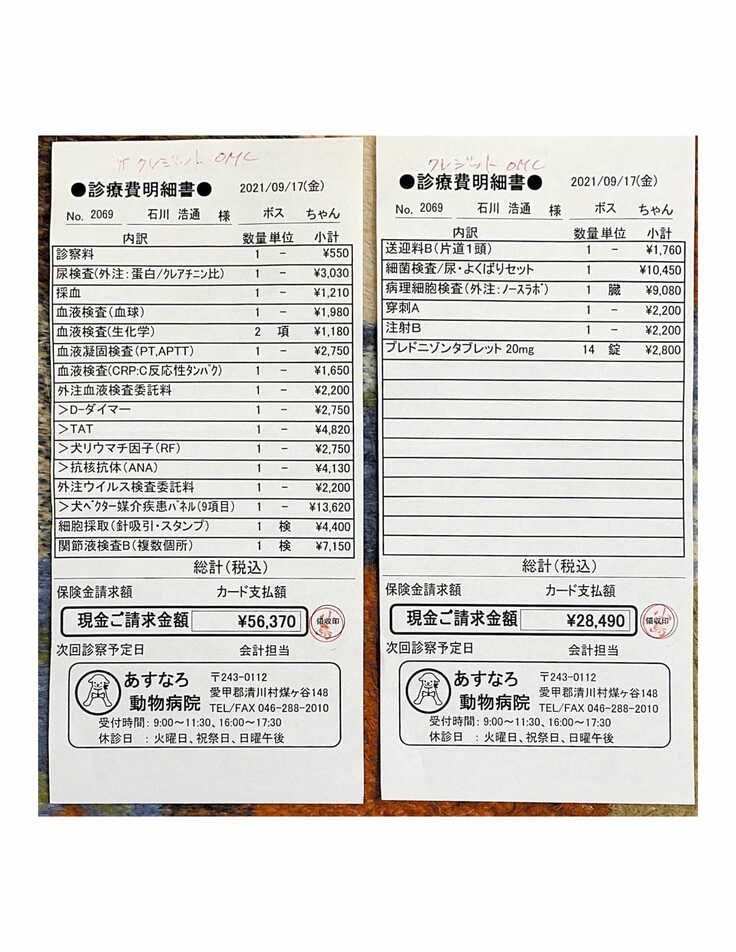 クレジット OMC
●診療費明細書● 2021/09/17(金)
No. 2069 石川 浩通 様 ボス ちゃん
内訳 数量 単位 小計
診察料 1 − ¥550
尿検査(外注:蛋白/クレアチニン比) 1 − ¥3,030
採血 1 − ¥1,210
血液検査(血球) 1 − ¥1,980
血液検査(生化学) 2 項 ¥1,180
血液凝固検査(PT,APTT) 1 − ¥2,750
血液検査(CRP:C反応性タンパク) 1 − ¥1,650
外注血液検査委託料 1 − ¥2,200
>D-ダイマー 1 − ¥2,750
>TAT 1 − ¥4,820
>犬リウマチ因子(RF) 1 − ¥2,750
>抗核抗体(ANA) 1 − ¥4,130
外注ウイルス検査委託料 1 − ¥2,200
>犬ベクター媒介疾患パネル(9項目) 1 − ¥13,620
細胞採取(針吸引・スタンプ) 1 検 ¥4,400
関節液検査B(複数個所) 1 検 ¥7,150
総計(税込)
保険金請求額 カード支払額
現金ご請求金額 ¥56,370 領収印
次回診察予定日 会計担当
あすなろ動物病院
〒243-0112
愛甲郡清川村煤ヶ谷148
TEL/FAX 046-288-2010
受付時間:9:00〜11:30、16:00〜17:30
休診日 :火曜日、祝祭日、日曜午後
クレジット OMC
●診療費明細書● 2021/09/17(金)
No. 2069 石川 浩通 様 ボス ちゃん
内訳 数量 単位 小計
送迎料B(片道1頭) 1 − ¥1,760
細菌検査/尿・よくばりセット 1 ¥10,450
病理細胞検査(外注:ノースラボ) 1 臓 ¥9,080
穿刺A 1 − ¥2,200
注射B 1 − ¥2,200
プレドニゾンタブレット 20mg 14 錠 ¥2,800
総計(税込)
保険金請求額 カード支払額
現金ご請求金額 ¥28,490 領収印
次回診察予定日 会計担当
あすなろ動物病院
〒243-0112
愛甲郡清川村煤ヶ谷148
TEL/FAX 046-288-2010
受付時間:9:00〜11:30、16:00〜17:30
休診日 :火曜日、祝祭日、日曜午後